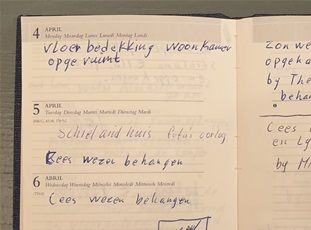 4 APRIL
Monday Maandag Lunes Lunedì Montag Lundi
vloer bedekking woonkamer
opgeruimt
5 APRIL
Tuesday Dinsdag Martes Martedì Dienstag Mardi
Schiedamhuis foto's oorlog
Cees wezen behangen
6 APRIL
Wednesday Woensdag Miércoles Mercoledì Mittwoch Mercredi
Cees wezen behangen
zon we
opgeha
by The
behan
Cees
en Ly
by M